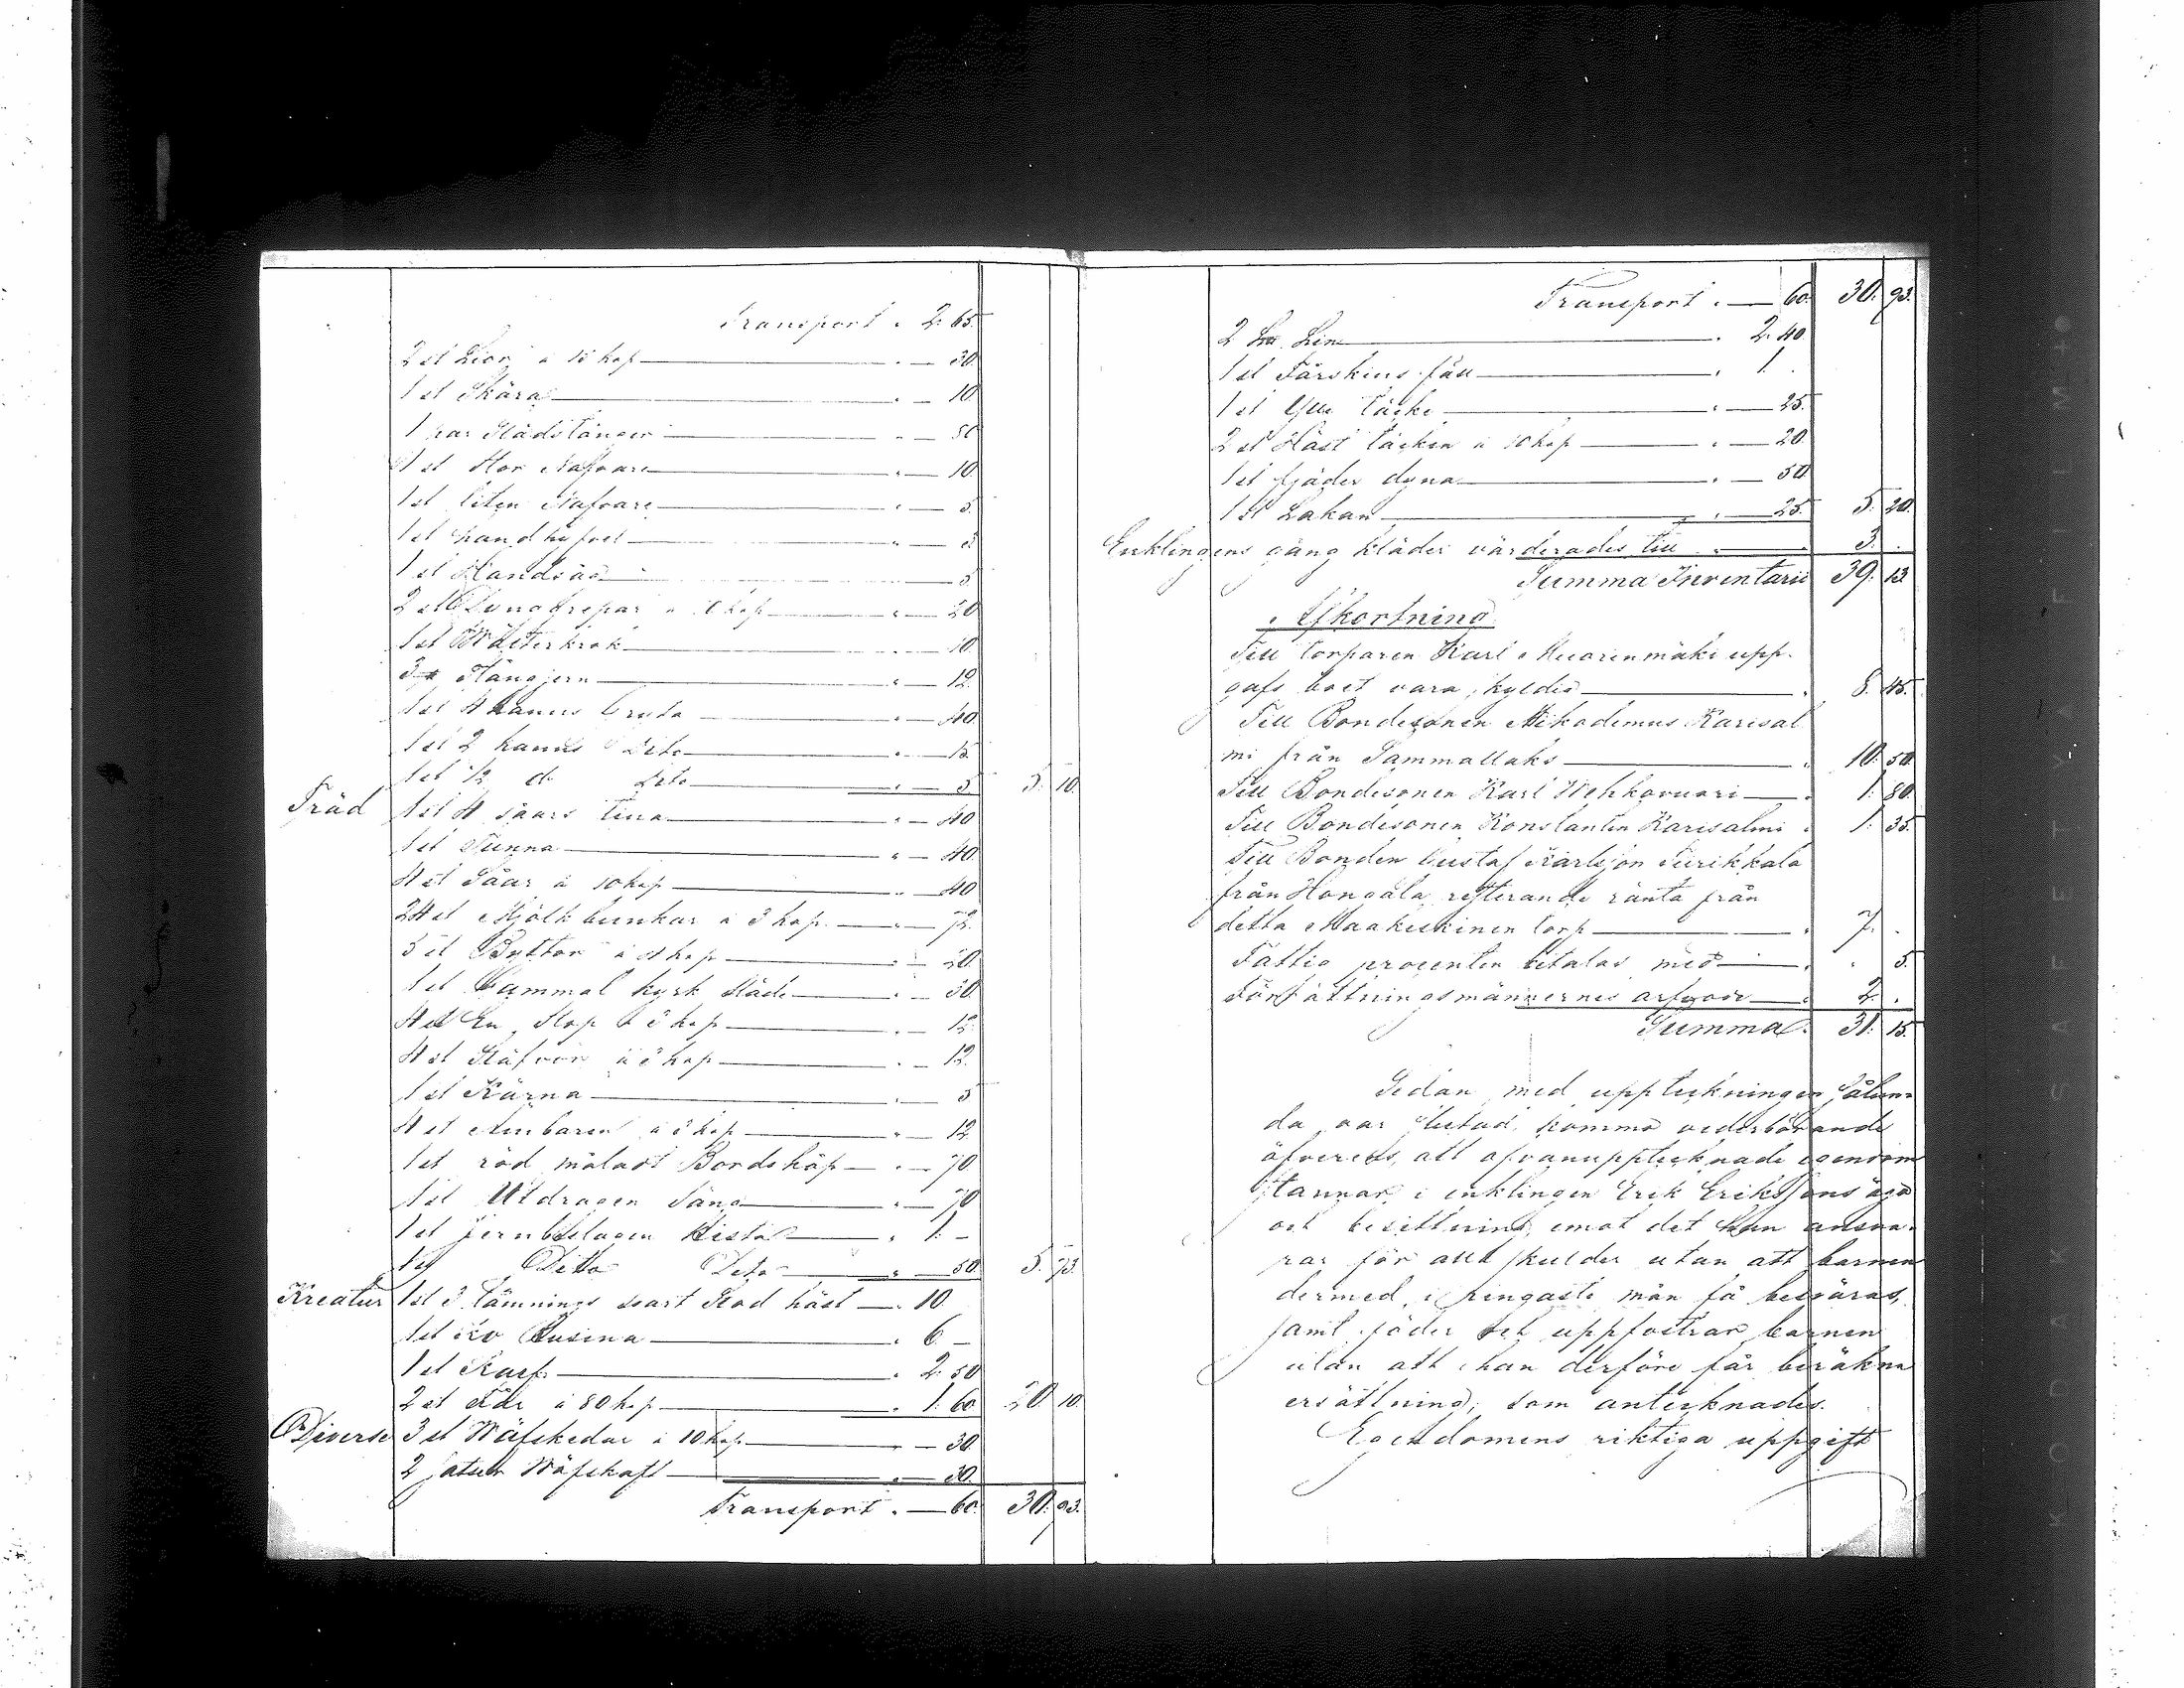 Transport . 2. 65.
2 st Liar à 15 kop . — 30.
1 st Skära . — 10.
1 par Städstänger . — 50
1 st Stor Nafvare . — 10.
1 st liten Nafvare . — 5.
1 st handhyfvel . —
1 st Handsåg . — 5
2 st à 10 kop . — 20
1 st . — 10.
3 st Hängjern . — 12.
1 st 4 kanns Gryta . — 40
1 st 2 kanns Dito . — 15.
1 st 1/2 d: Dito . — 5 5. 10.
Träd 1 st 4 såars tina . — 40
1 st Tunna . — 40.
4 st Såar à 10 kop . — 40
24 st Mjölk bunkar à 3 kop. . — 72.
5 st Byttor à 4 kop . — 20.
1 st Gammal kyrk släde . — 30.
4 st En Stop à 3 kop . — 12.
4 st Stäfvor à 3 kop . — 12.
1 st Kärna . — 5
4 st Ämbaren à 3 kop . — 12.
1 st röd måladt Bordskåp . — 70.
1 st Utdragen Säng . — 70
1 st jernbeslagen Kista . 1. –
1 st Ditto Dito . — 50. 5. 73.
Kreatur 1 st 3 tämnings svart Stod häst . 10
1 st Ko Rusina . 6 –
1 st Kalf . 2. 50
2 st Får à 80 kop . 1. 60. 20. 10.
Diverse 3 st Wäfskedar à 10 kop . — 30.
2 satser Wäfskaft . — 30.
Transport . — 60. 30. 93.
Transport . — 60. 30. 93.
2 Lin . 2. 40.
1 st Fårskins fäll . 1. .
1 st Ylle täcke . — 25.
2 st Häst täcken à 10 kop . — 20.
1 st fjäder dyna . — 50.
1 st Lakan . — 25. 5. 20.
Enklingens gång kläder värderades till . 3. .
Summa Inventarii 39. 13.
Afkortning.
Till torparen Karl Muorinmäki upp-
gafs boet vara skyldig . 8. 45.
Till Bondesonen Nikodemus Karisal
mi från Sammallaks . 10. 50.
Till Bondesonen Karl Wehkovuori . 1. 80.
Till Bondesonen Konstantin Karisalmi . 1. 35.
Till Bonden Gustaf Karlsson Turikkala
från Hongala resterande ränta från
detta Maakiskinen torp . 7. .
Fattig procenten betalas med . . 5.
Författningsmännernes arfvode . 2. .
Summa . 31. 15.
Sedan med uppteckningen sålun-
da var slutad, kommo vederbörande
öfverens, att ofvanupptecknade egendom
stannar i enklingen Erik Erikssons ägo
och besittning, emot det han ansva-
rar för all skulder utan att barnen
dermed i ringaste mån få besväras,
samt föder och uppfostrar barnen
utan att han derföre får beräkna
ersättning; som antecknades.
Egendomens riktiga uppgift
KODAK SAFETY FILM